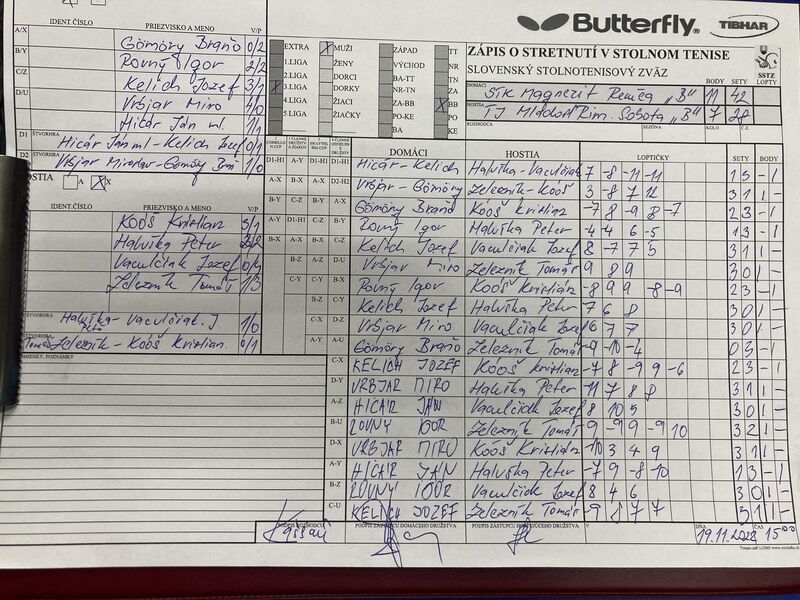 Butterfly
TIBHAR
ZÁPIS O STRETNUTÍ V STOLNOM TENISE
SLOVENSKÝ STOLNOTENISOVÝ ZVÄZ
SSTZ
DOMÁCI BODY SETY LOPTY
STK Magnezit Jelšava "B" 11 42
HOSTIA
TJ Mladosť Rim. Sobota "B" 7 28
ROZHODCA SEZÓNA KOLO Č.Z.
IDENT.ČÍSLO PRIEZVISKO A MENO V/P
A/X Gömöry Braňo 0/2
B/Y Rovný Igor 2/2
C/Z Kelich Jozef 3/1
D/U Vrbjar Miro 4/0
Hicár Ján ml. 1/1
D1 ŠTVORHRA Hicár Ján ml - Kelich Jozef 0/1
D2 Vrbjar Miroslav - Gömöry Bra 1/0
HOSTIA A X
IDENT.ČÍSLO PRIEZVISKO A MENO V/P
Kóóš Kristian 3/1
Haluška Peter 2/2
Vaculčiak Jozef 0/4
Železník Tomáš 1/3
ŠTVORHRA Haluška - Vaculčiak J 1/0
ŠTVORHRA Tomáš Železník - Kóóš Kristian 0/1
POZNÁMKY
EXTRA X MUŽI ZÁPAD TT
1.LIGA ŽENY VÝCHOD NR
2.LIGA DORCI BA-TT TN
X 3.LIGA DORKY NR-TN ZA
4.LIGA ŽIACI ZA-BB X BB
5.LIGA ŽIAČKY PO-KE PO
BA KE
DOMÁCI HOSTIA LOPTIČKY SETY BODY
D1-H1 Hicár - Kelich Haluška - Vaculčiak 7 -8 -11 -11 1 3 - 1
D2-H2 Vrbjar - Gömöry Železník - Kóóš 3 -8 7 12 3 1 1 -
B-Y Gömöry Braňo Kóóš Kristian -7 8 -9 8 -7 2 3 - 1
Rovný Igor Haluška Peter -4 4 6 -5 1 3 - 1
Kelich Jozef Vaculčiak Jozef 8 -7 7 5 3 1 1 -
Vrbjar Miro Železník Tomáš 9 8 9 3 0 1 -
Rovný Igor Kóóš Kristian -8 9 9 -8 -9 2 3 - 1
Kelich Jozef Haluška Peter 7 6 8 3 0 1 -
D-Z Vrbjar Miro Vaculčiak Jozef 6 7 7 3 0 1 -
A-U Gömöry Braňo Železník Tomáš -9 -10 -4 0 3 - 1
C-X KELICH JOZEF Kóóš Kristian -7 8 -9 9 -6 2 3 - 1
D-Y VRBJAR MIRO Haluška Peter -11 7 8 8 3 1 1 -
A-Z HICÁR JÁN Vaculčiak Jozef 8 10 5 3 0 1 -
B-U ROVNÝ IGOR Železník Tomáš -9 9 -9 9 10 3 2 1 -
D-X VRBJAR MIRO Kóóš Kristian -10 3 4 9 3 1 1 -
A-Y HICÁR JÁN Haluška Peter -7 9 -8 -10 1 3 - 1
B-Z ROVNÝ IGOR Vaculčiak Jozef 8 4 6 3 0 1 -
C-U KELICH JOZEF Železník Tomáš -9 8 7 7 3 1 1 -
PODPIS ROZHODCU PODPIS ZÁSTUPCU DOMÁCEHO DRUŽSTVA PODPIS ZÁSTUPCU HOSŤUJÚCEHO DRUŽSTVA V DŇA 19.11.2022 ČAS 15:00